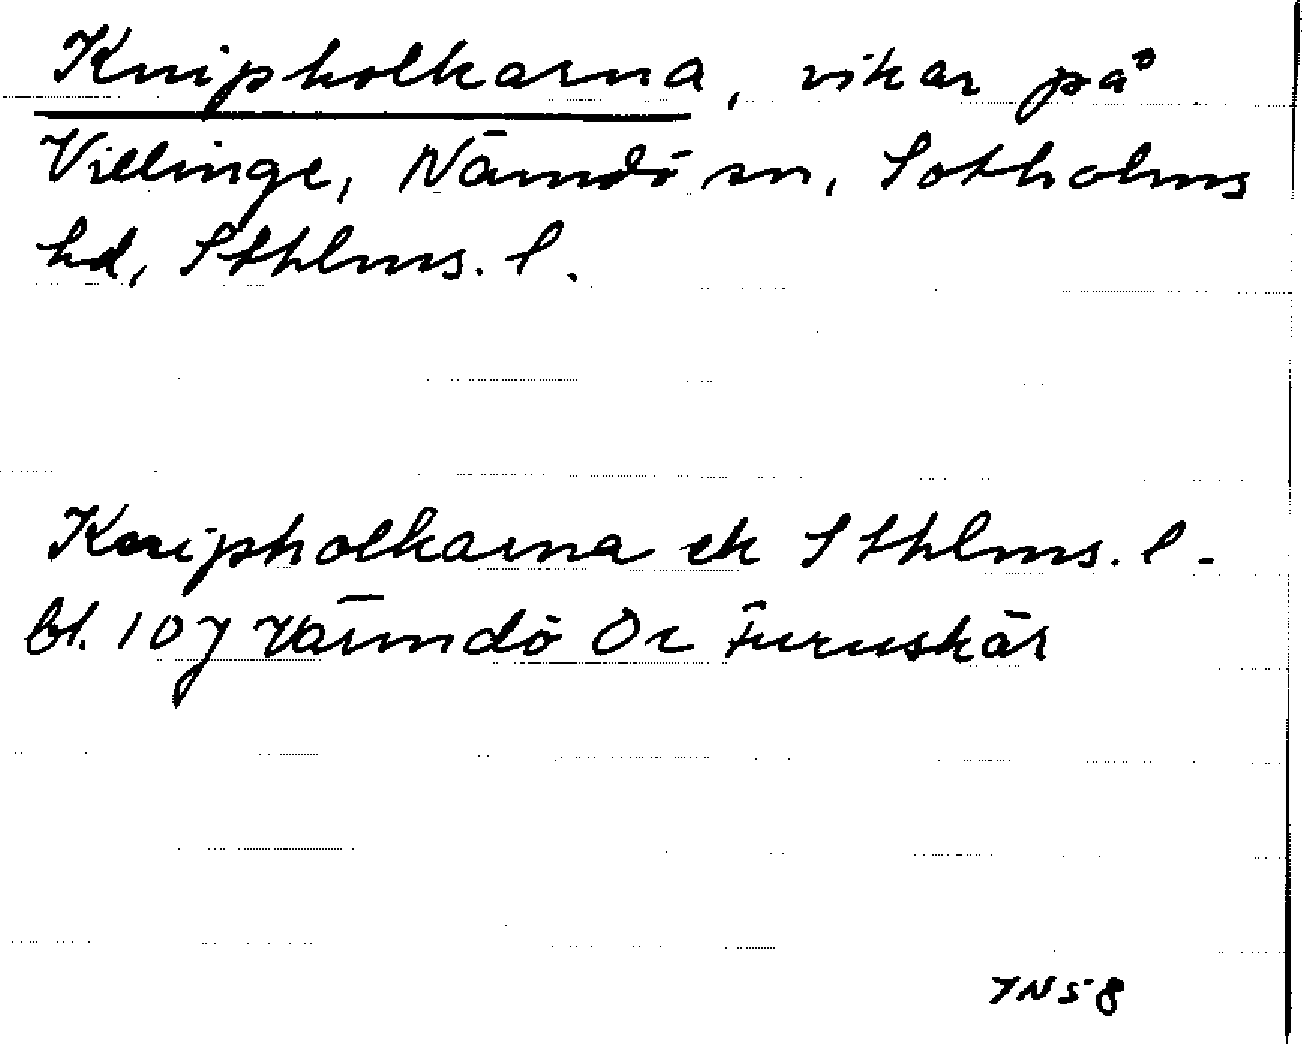 Knipholkarna, vikar på
Villinge, Nämdö sn, Sotholms
hd, Sthlms. l.
Knipholkarna ek Sthlms. l.
bl. 107 Värmdö Or Furuskär
YNS8